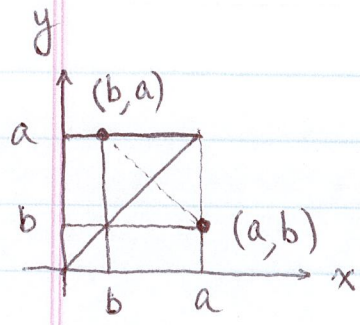 y
(b,a)
a
b
(a,b)
x
b a